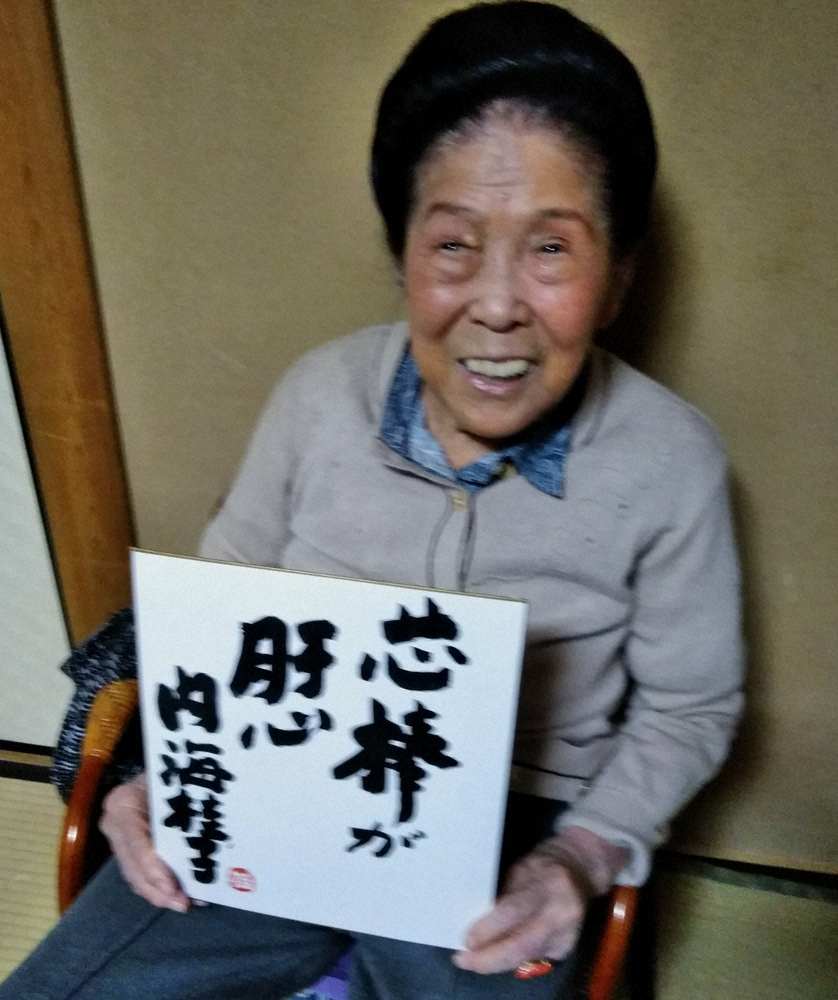 芯棒が
肝心
内海桂子